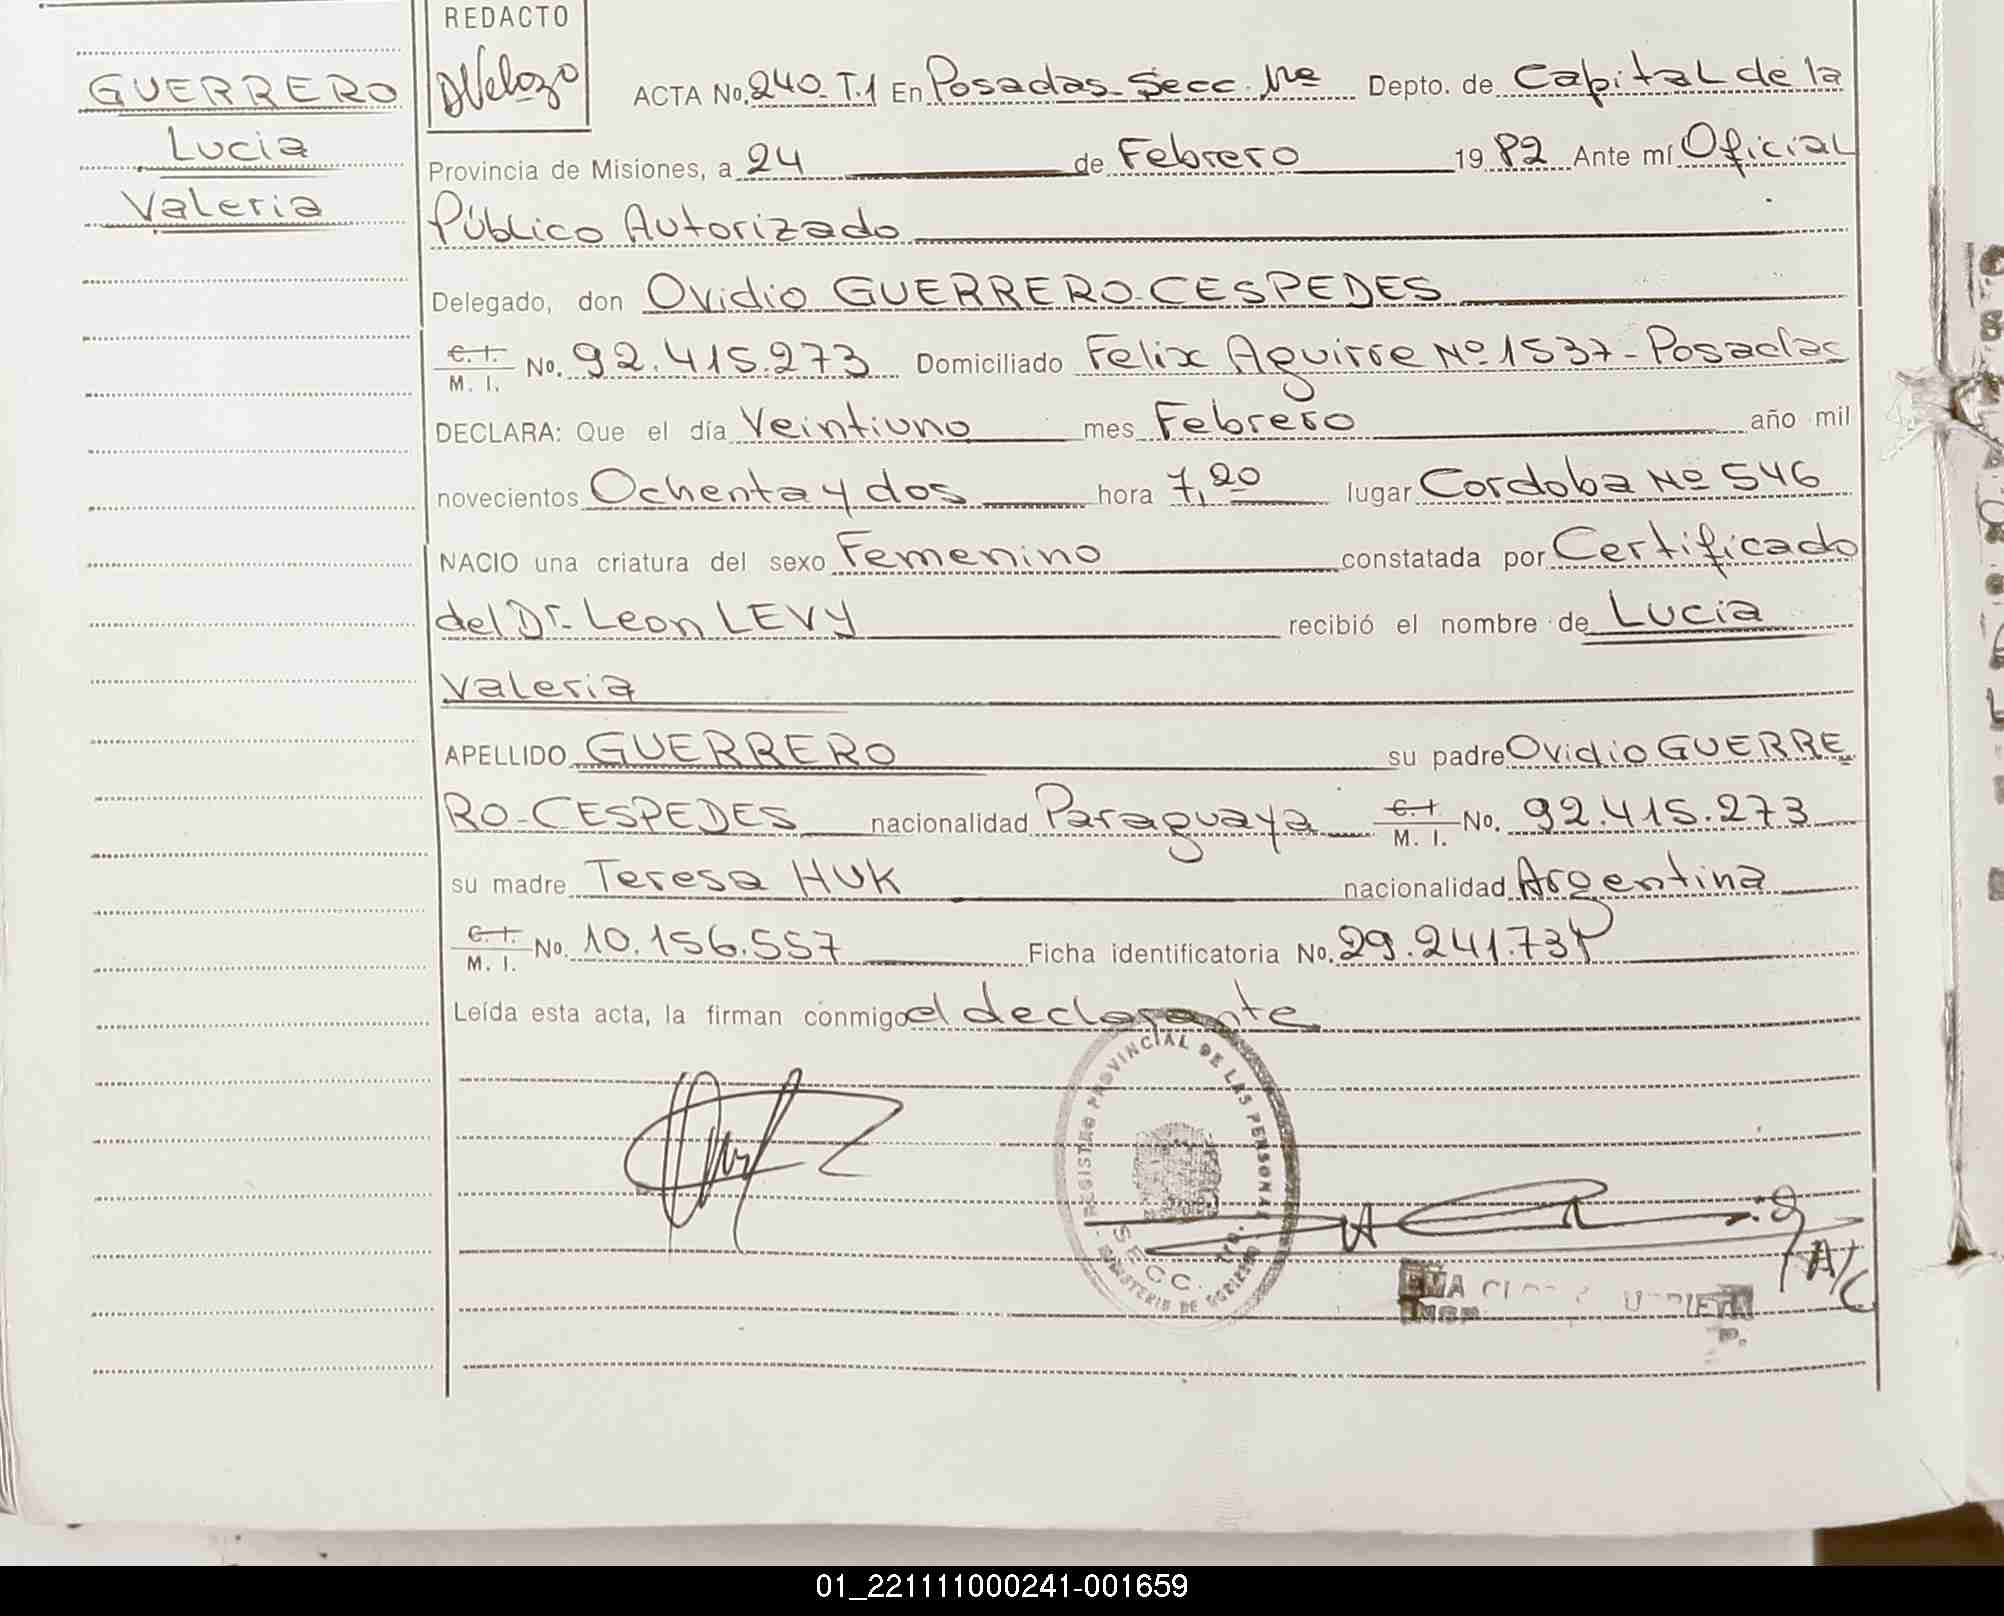 GUERRERO
Lucia
Valeria
REDACTO
DVelozo
ACTA No. 240-T.1 En Posadas-Secc. 1ra Depto. de Capital de la
Provincia de Misiones, a 24 de Febrero 1982 Ante mí Oficial
Público Autorizado
Delegado, don Ovidio GUERRERO-CESPEDES
C. I. / M. I. No. 92.415.273 Domiciliado Felix Aguirre Nº 1537-Posadas
DECLARA: Que el día Veintiuno mes Febrero año mil
novecientos Ochenta y dos hora 7,20 lugar Cordoba Nº 546
NACIO una criatura del sexo Femenino constatada por Certificado
del Dr. Leon LEVY recibió el nombre de Lucia
Valeria
APELLIDO GUERRERO su padre Ovidio GUERRE
RO-CESPEDES nacionalidad Paraguaya C. I. / M. I. No. 92.415.273
su madre Teresa HUK nacionalidad Argentina
C. I. / M. I. No. 10.156.557 Ficha identificatoria No. 29.241.731
Leída esta acta, la firman conmigo el declarante
REGISTRO PROVINCIAL DE LAS PERSONAS
SECC. 1ra.
MINISTERIO DE GOBIERNO
A/C
01_221111000241-001659